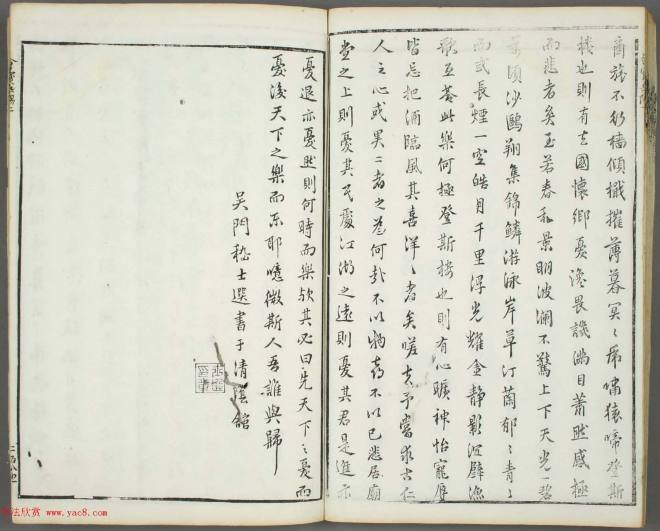 商旅不行檣傾檝摧薄暮冥〻虎嘯猿啼登斯
樓也則有去國懷鄉憂讒畏譏滿目蕭然感極
而悲者矣至若春和景明波瀾不驚上下天光一碧
萬頃沙鷗翔集錦鱗游泳岸草汀蘭郁〻青〻
而或長煙一空皓月千里浮光耀金靜影沉璧漁
歌互荅此樂何極登斯樓也則有心曠神怡寵辱
皆忘把酒臨風其喜洋〻者矣嗟夫予嘗求古仁
人之心或異二者之為何哉不以物喜不以己悲居廟
堂之上則憂其民處江湖之遠則憂其君是進亦
憂退亦憂然則何時而樂歟其必曰先天下〻憂而
憂後天下之樂而樂耶噫微斯人吾誰與歸
吳門嵇士選書于清館
法欣赏 www.yac8.com